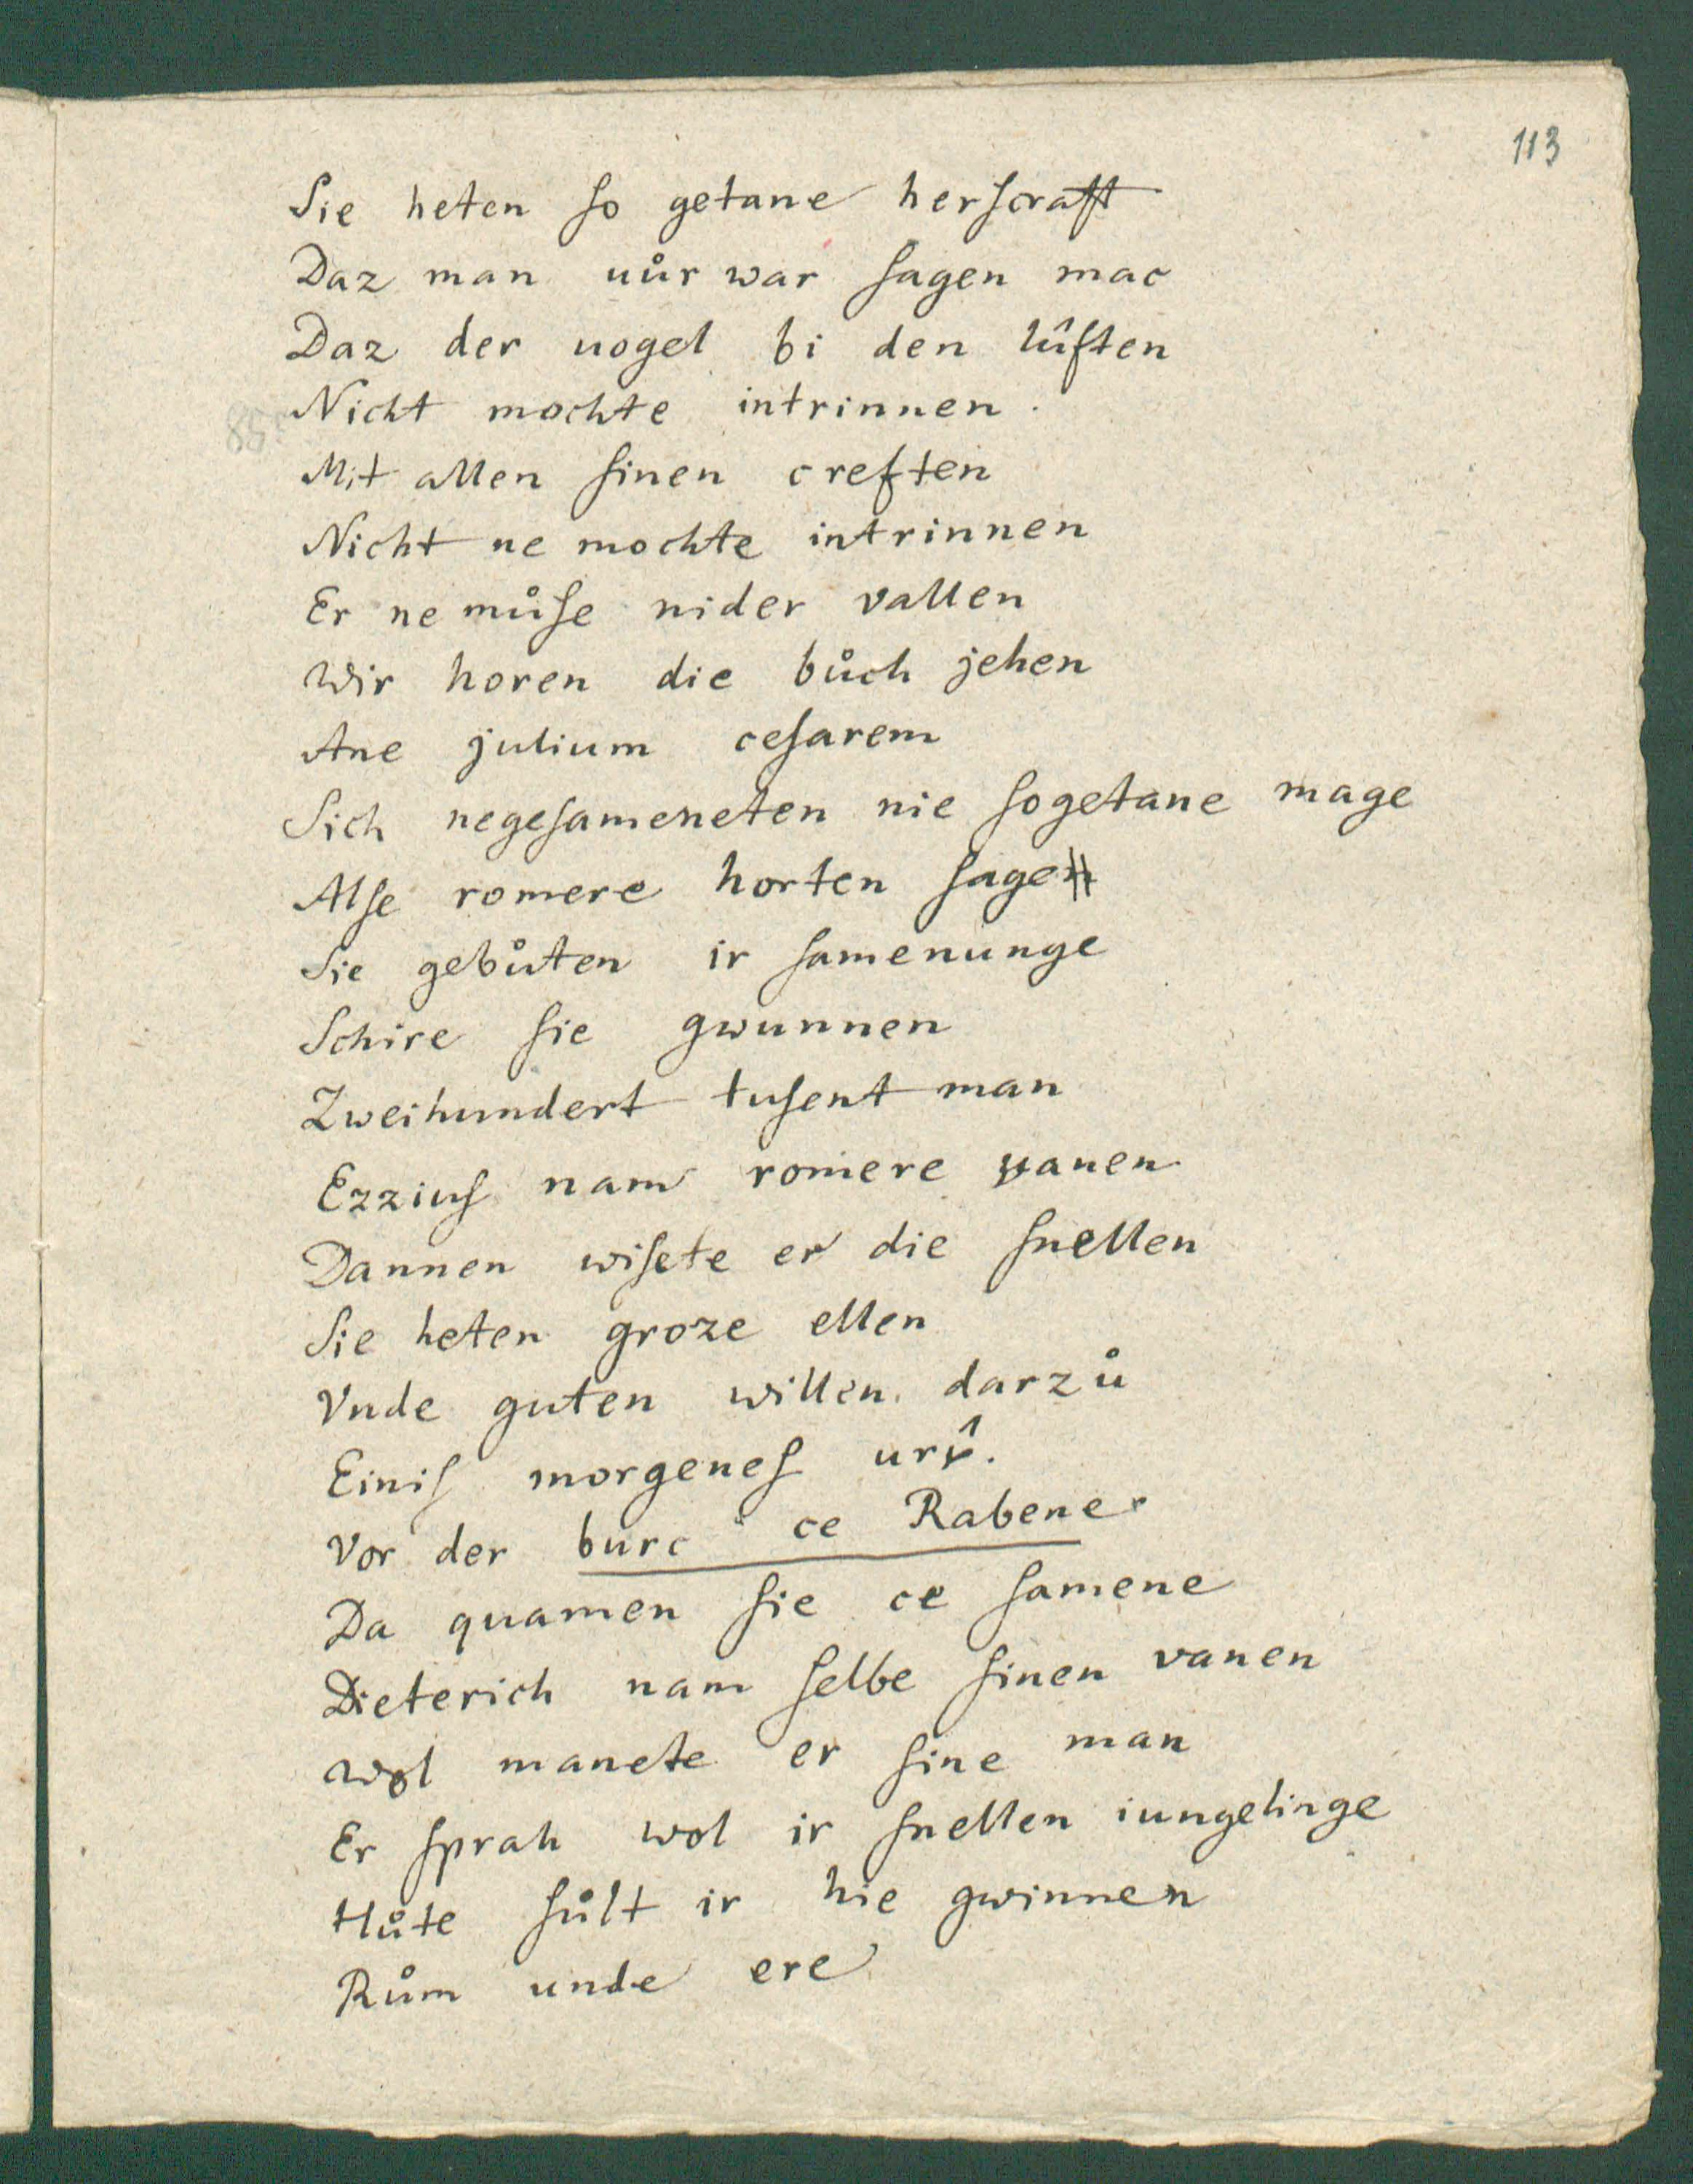 113
Sie heten ſo getane herſcraft
Daz man uůr war ſagen mac
Daz der uogel bi den lûften
Nicht mochte intrinnen.
Mit allen ſinen creften
Nicht ne mochte intrinnen
Er ne můſe nider vallen
Wir horen die bůch jehen
Ane julium ceſarem
Sich negeſameneten nie ſogetane mage
Alſe romere horten ſagen
Sie gebůten ir ſamenunge
Schire ſie gwunnen
Zweihundert tuſent man
Ezziuſ nam romere vanen
Dannen wiſete er die ſnellen
Sie heten groze ellen
Vnde guten willen darzů
Einiſ morgeneſ urv̂.
Vor der burc ce Rabene
Da quamen ſie ce ſamene
Dieterich nam ſelbe ſinen vanen
Wol manete er ſine man
Er ſprah wol ir ſnellen iungelinge
Hůte ſůlt ir hie gwinnen
Rům unde ere